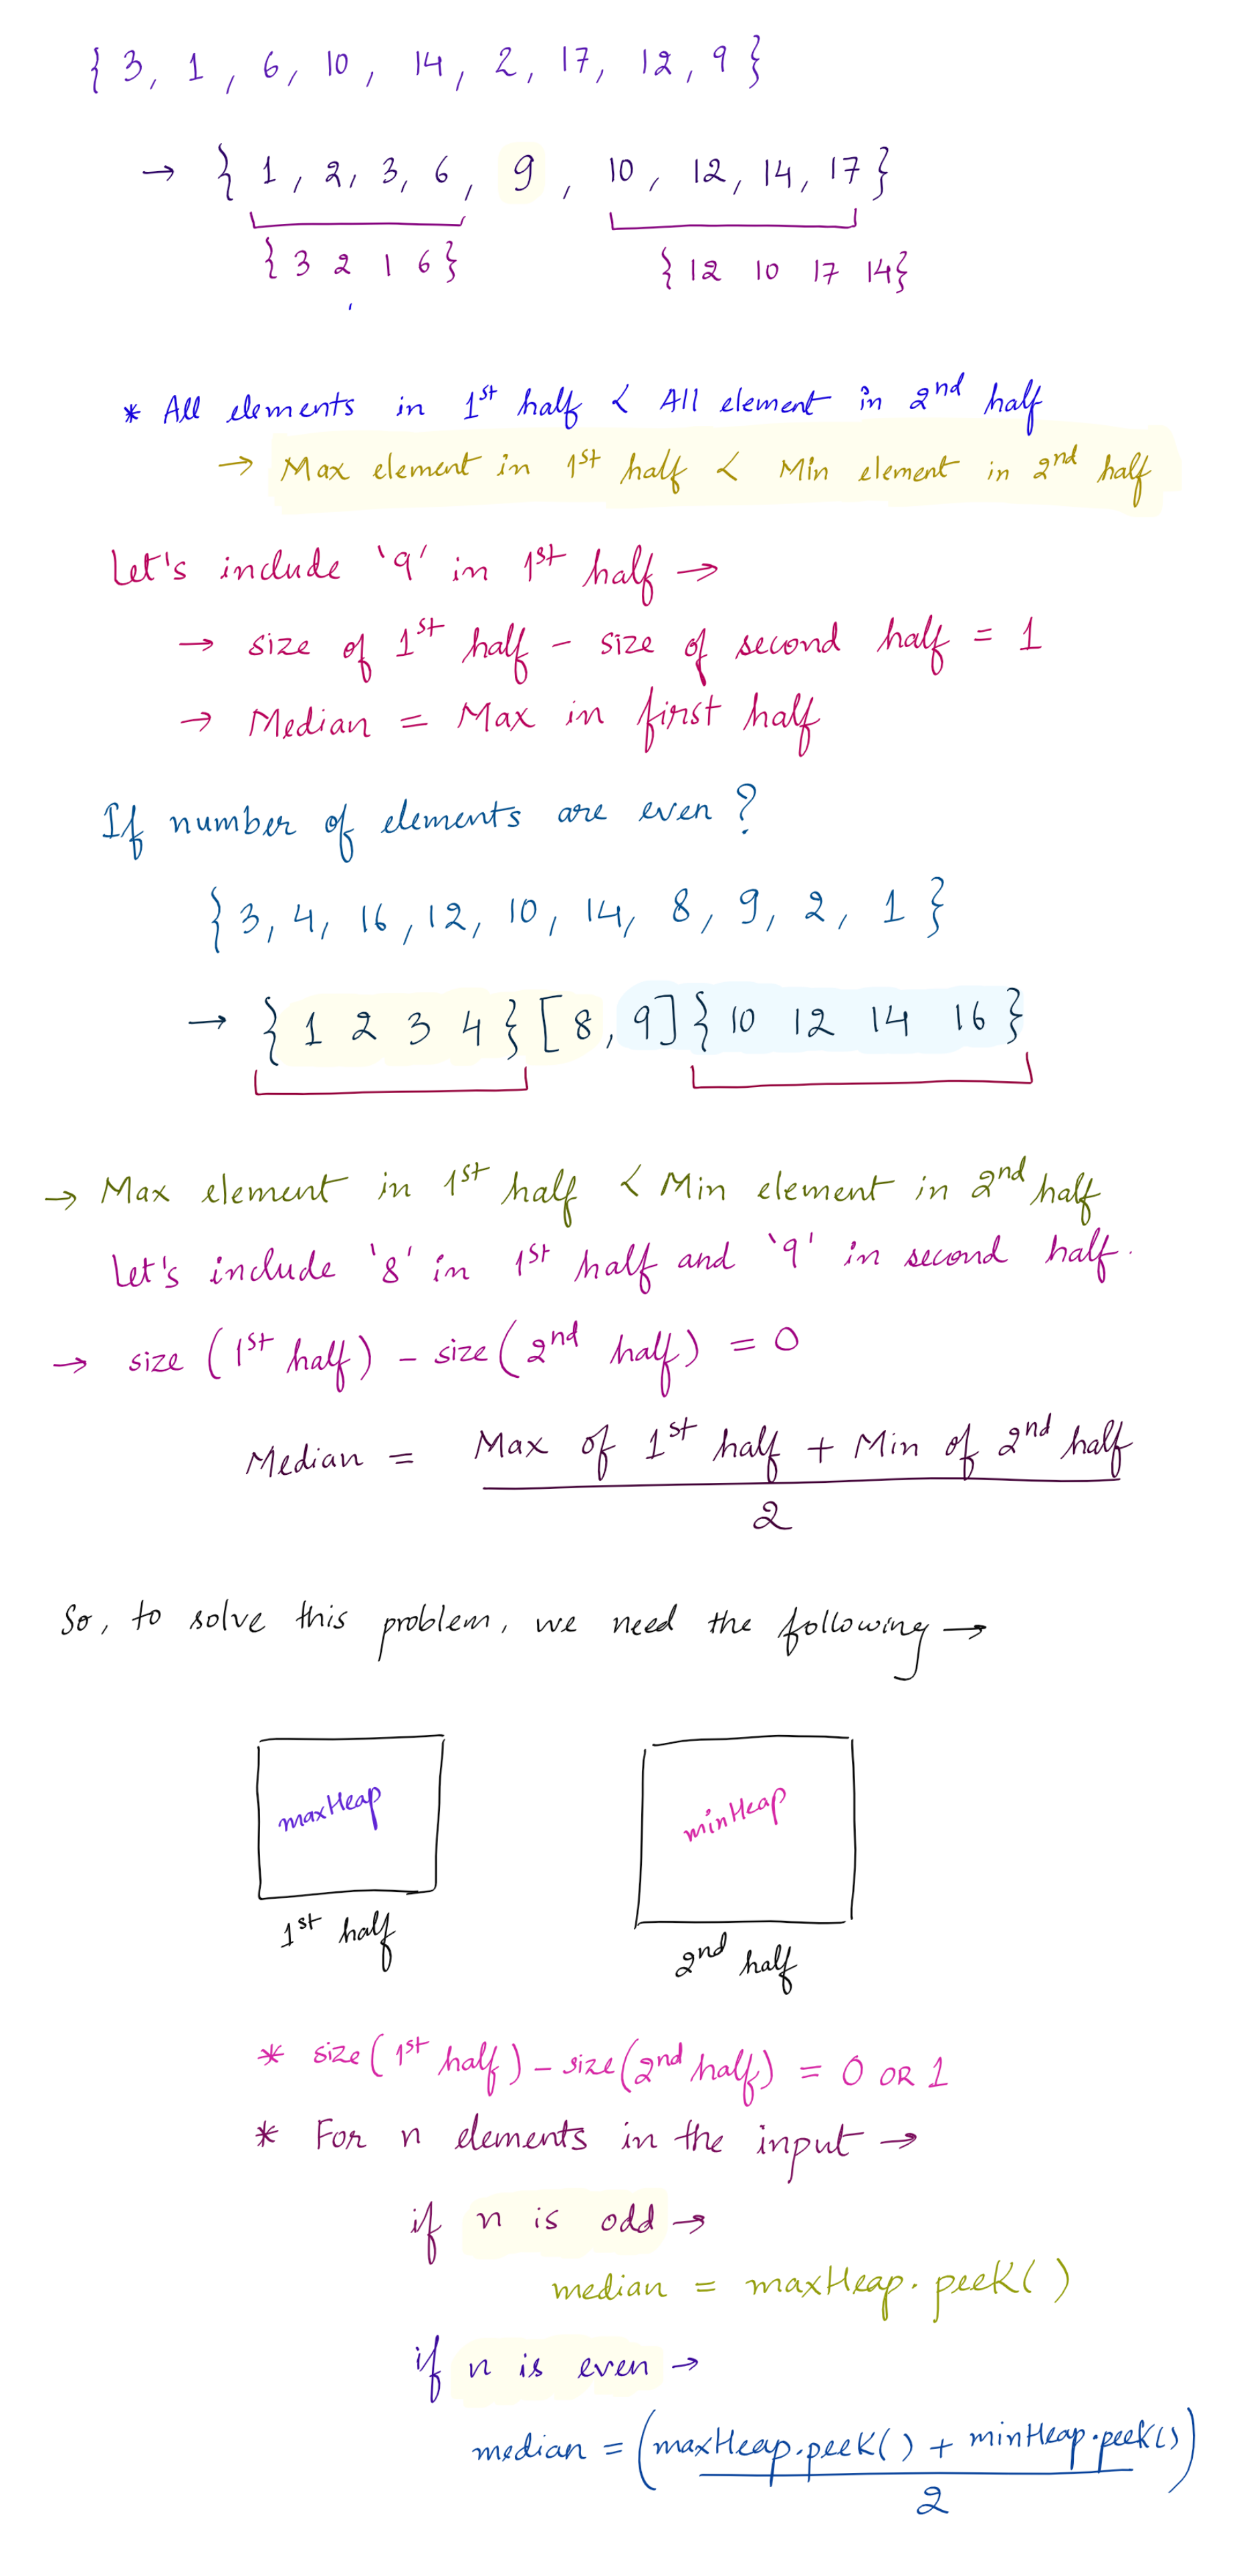 { 3, 1, 6, 10, 14, 2, 17, 12, 9 }
→ { 1, 2, 3, 6, 9, 10, 12, 14, 17 }
{ 3 2 1 6 } { 12 10 17 14 }
* All elements in 1st half < All element in 2nd half
→ Max element in 1st half < Min element in 2nd half
Let's include '9' in 1st half →
→ size of 1st half - size of second half = 1
→ Median = Max in first half
If number of elements are even ?
{ 3, 4, 16, 12, 10, 14, 8, 9, 2, 1 }
→ { 1 2 3 4 } [ 8, 9 ] { 10 12 14 16 }
→ Max element in 1st half < Min element in 2nd half
Let's include '8' in 1st half and '9' in second half.
→ size (1st half) - size (2nd half) = 0
Median = Max of 1st half + Min of 2nd half
2
So, to solve this problem, we need the following →
maxHeap minHeap
1st half 2nd half
* size (1st half) - size (2nd half) = 0 OR 1
* For n elements in the input →
if n is odd →
median = maxHeap.peek()
if n is even →
median = (maxHeap.peek() + minHeap.peek())
2